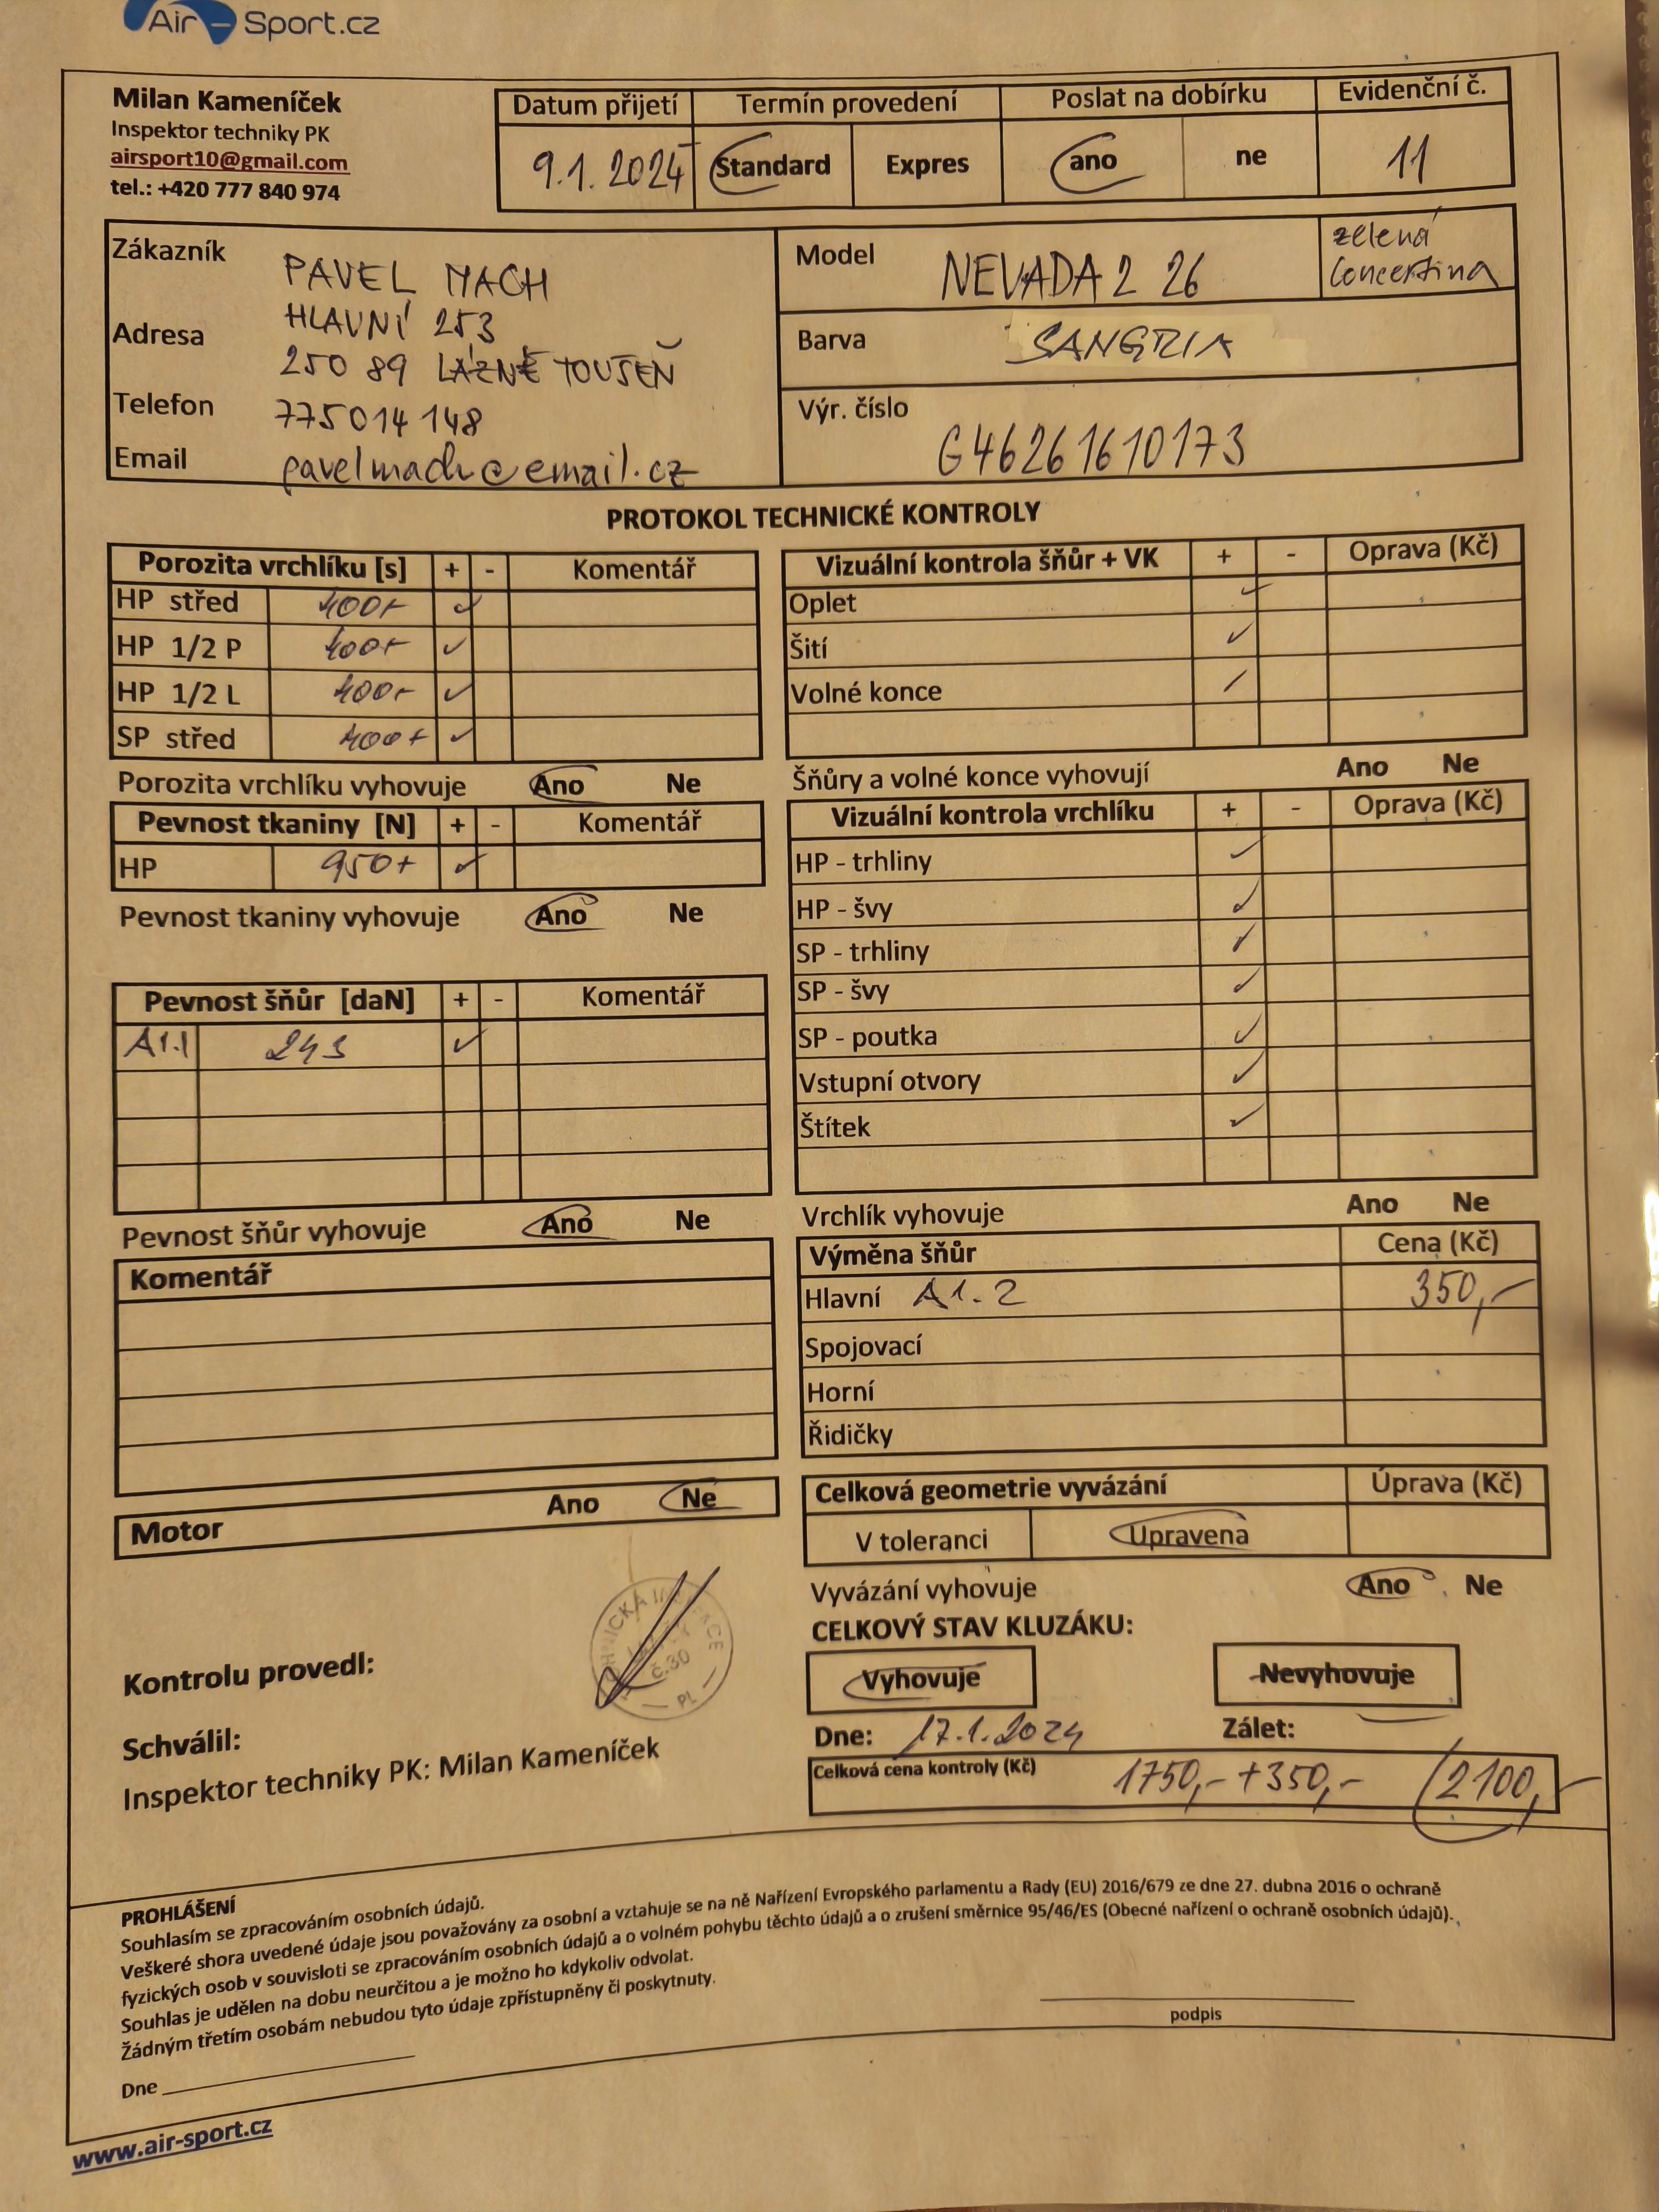 Air - Sport.cz
Milan Kameníček
Inspektor techniky PK
airsport10@gmail.com
tel.: +420 777 840 974
Datum přijetí Termín provedení Poslat na dobírku Evidenční č.
9.1.2024 Standard Expres ano ne 11
Zákazník PAVEL MACH
Adresa HLAVNÍ 253
250 89 LÁZNĚ TOUŠEŇ
Telefon 775014 148
Email pavelmach@email.cz
Model NEVADA 2 26 zelená
concertina
Barva SANGRIA
Výr. číslo G46261610173
PROTOKOL TECHNICKÉ KONTROLY
Porozita vrchlíku [s] + - Komentář
HP střed 400+ ✓
HP 1/2 P 400+ ✓
HP 1/2 L 400+ ✓
SP střed 400+ ✓
Porozita vrchlíku vyhovuje Ano Ne
Pevnost tkaniny [N] + - Komentář
HP 950+ ✓
Pevnost tkaniny vyhovuje Ano Ne
Pevnost šňůr [daN] + - Komentář
A1.1 243 ✓
Pevnost šňůr vyhovuje Ano Ne
Komentář
Motor Ano Ne
Vizuální kontrola šňůr + VK + - Oprava (Kč)
Oplet ✓
Šití ✓
Volné konce ✓
Šňůry a volné konce vyhovují Ano Ne
Vizuální kontrola vrchlíku + - Oprava (Kč)
HP - trhliny ✓
HP - švy ✓
SP - trhliny ✓
SP - švy ✓
SP - poutka ✓
Vstupní otvory ✓
Štítek ✓
Vrchlík vyhovuje Ano Ne
Výměna šňůr Cena (Kč)
Hlavní A1.2 350,-
Spojovací
Horní
Řidičky
Celková geometrie vyvázání Úprava (Kč)
V toleranci Upravena
Vyvázání vyhovuje Ano Ne
CELKOVÝ STAV KLUZÁKU:
Vyhovuje Nevyhovuje
Dne: 17.1.2024 Zálet:
Celková cena kontroly (Kč) 1750,- +350,- 2100,-
Kontrolu provedl:
č.30
Schválil:
Inspektor techniky PK: Milan Kameníček
PROHLÁŠENÍ
Souhlasím se zpracováním osobních údajů.
Veškeré shora uvedené údaje jsou považovány za osobní a vztahuje se na ně Nařízení Evropského parlamentu a Rady (EU) 2016/679 ze dne 27. dubna 2016 o ochraně
fyzických osob v souvisloti se zpracováním osobních údajů a o volném pohybu těchto údajů a o zrušení směrnice 95/46/ES (Obecné nařízení o ochraně osobních údajů).
Souhlas je udělen na dobu neurčitou a je možno ho kdykoliv odvolat.
Žádným třetím osobám nebudou tyto údaje zpřístupněny či poskytnuty.
podpis
Dne
www.air-sport.cz